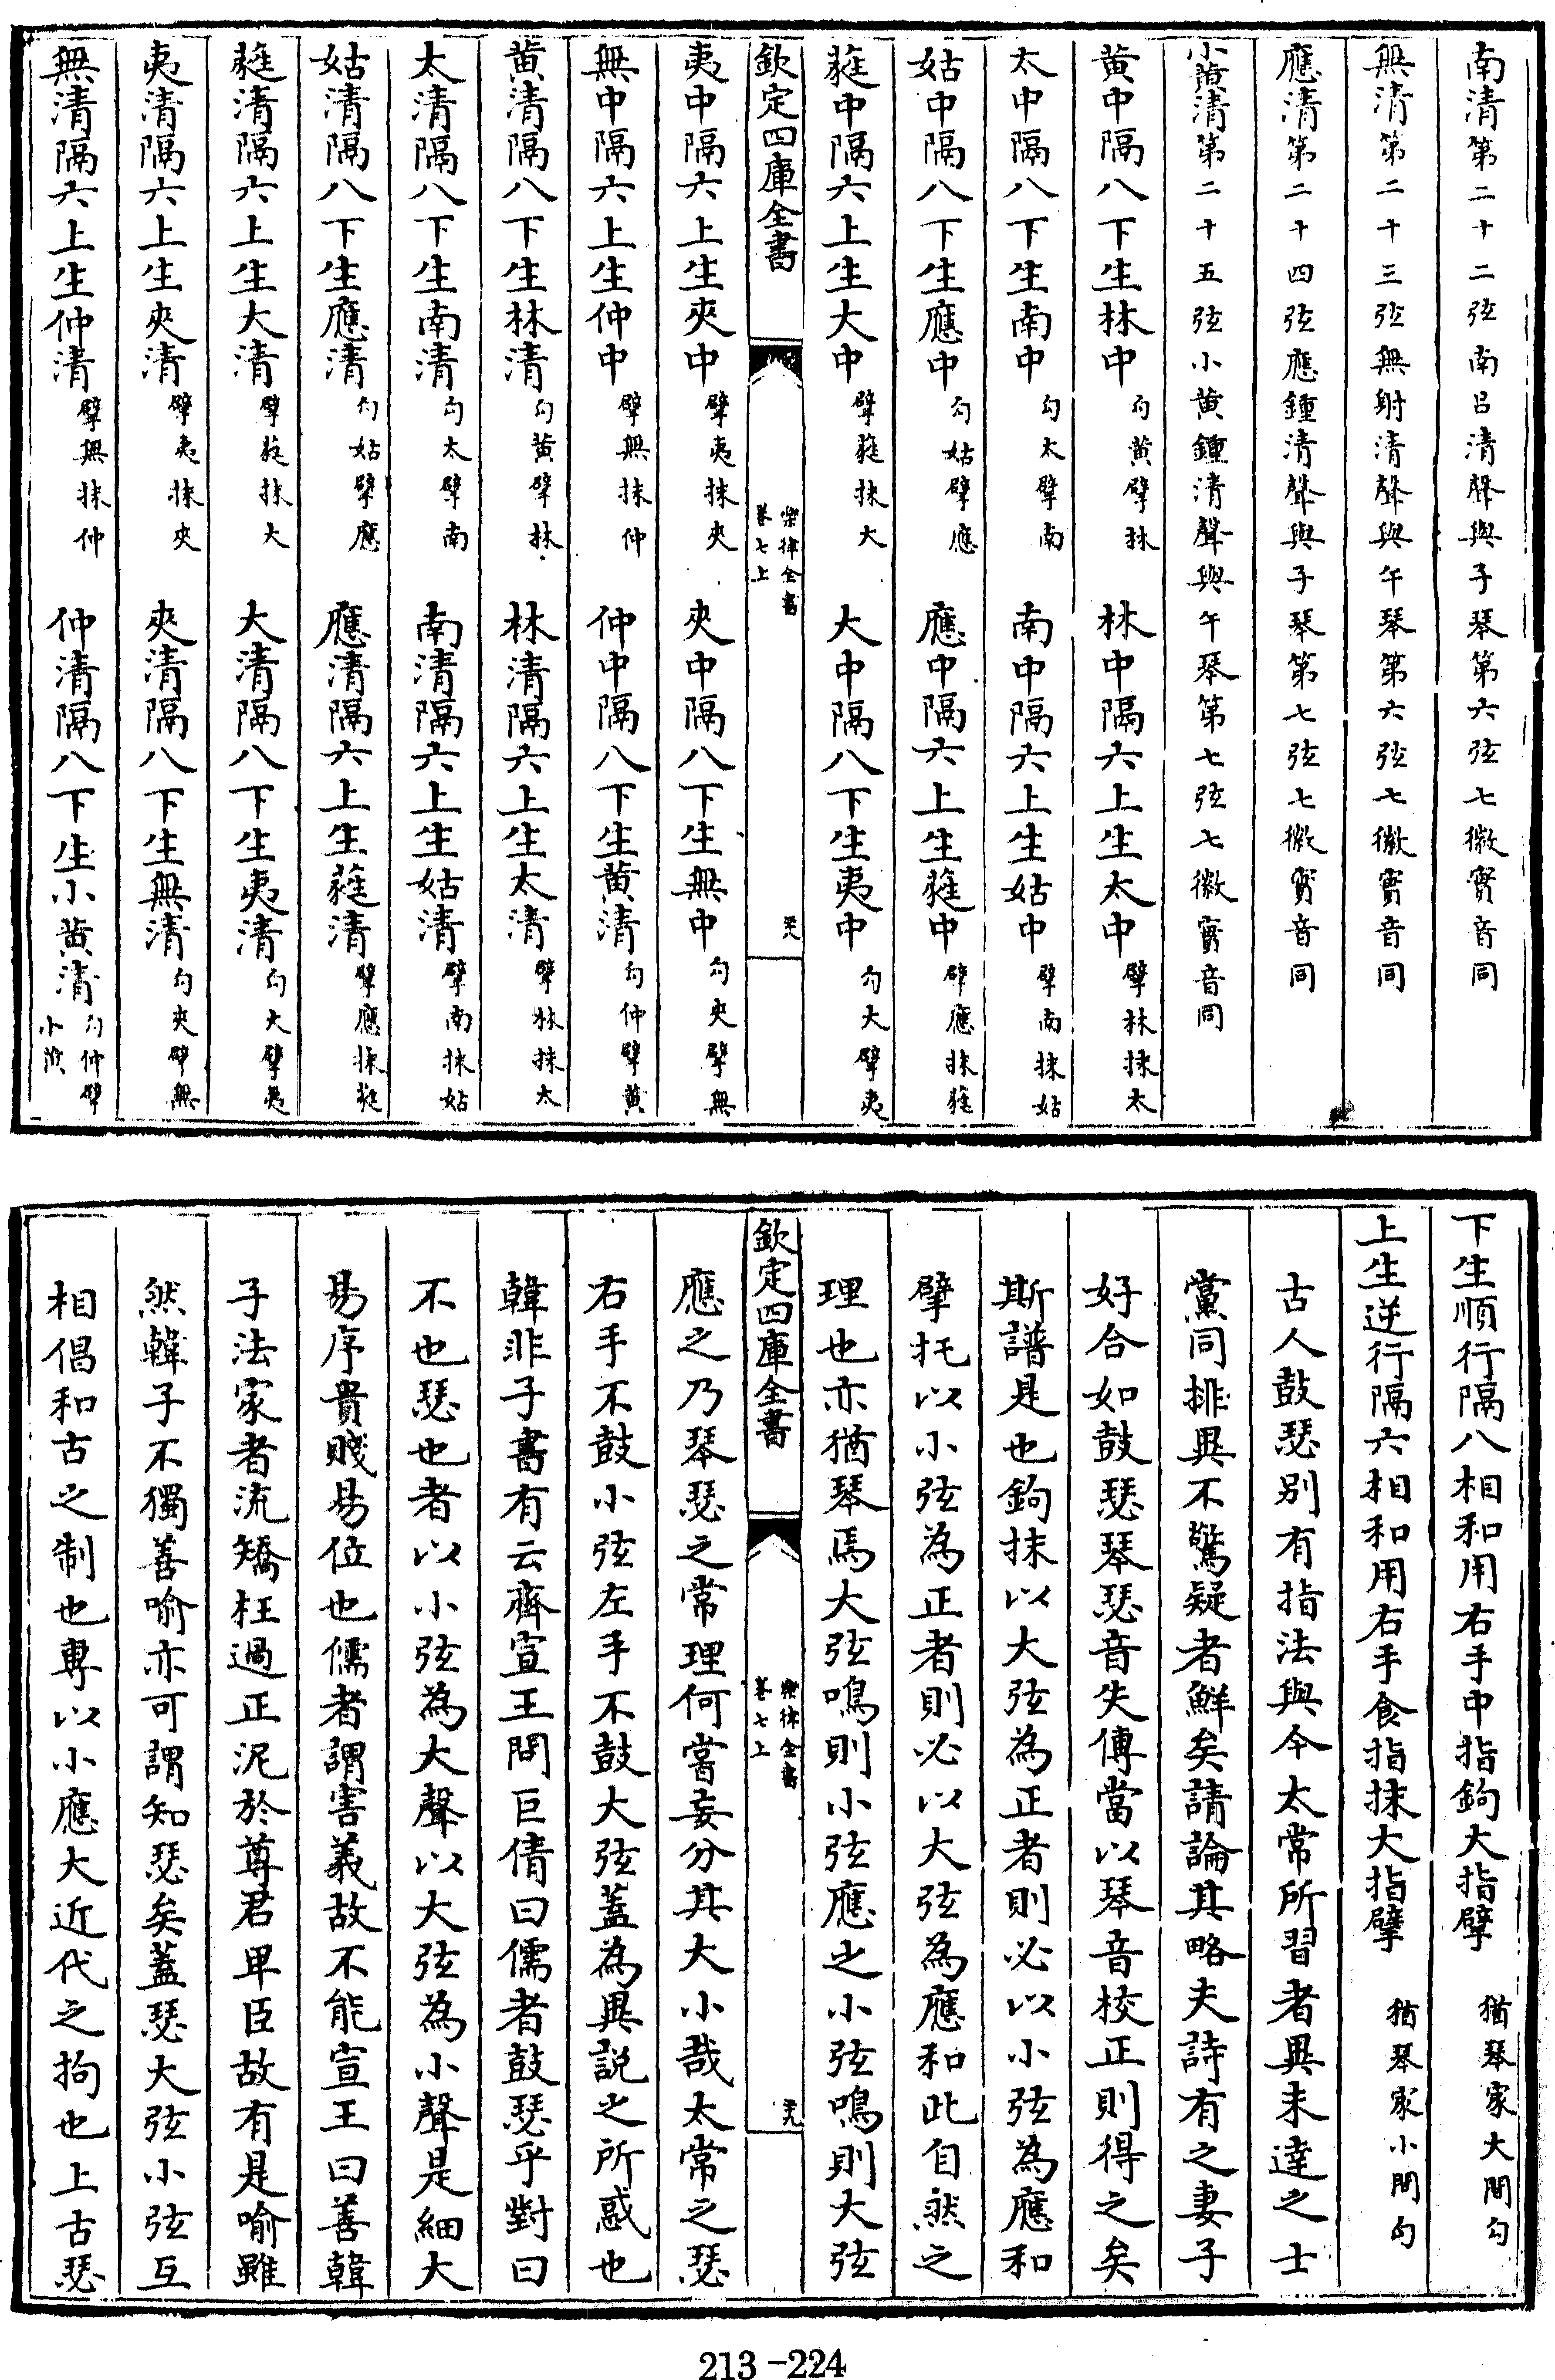 南清第二十二弦南呂清聲與子琴第六弦七徽實音同
無清第二十三弦無射清聲與午琴第六弦七徽實音同
應清第二十四弦應鍾清聲與子琴第七弦七徽實音同
小黄清第二十五弦小黄鍾清聲與午琴第七弦七徽實音同
黄中隔八下生林中勾黄擘林 林中隔六上生太中擘林抹太
太中隔八下生南中勾太擘南 南中隔六上生姑中擘南抹姑
姑中隔八下生應中勾姑擘應 應中隔六上生蕤中擘應抹蕤
蕤中隔六上生大中擘蕤抹大 大中隔八下生夷中勾大擘夷
欽定四庫全書 樂律全書卷七上 天
夷中隔六上生夾中擘夷抹夾 夾中隔八下生無中勾夾擘無
無中隔六上生仲中擘無抹仲 仲中隔八下生黄清勾仲擘黄
黄清隔八下生林清勾黄擘林 林清隔六上生太清擘林抹太
太清隔八下生南清勾太擘南 南清隔六上生姑清擘南抹姑
姑清隔八下生應清勾姑擘應 應清隔六上生蕤清擘應抹蕤
蕤清隔六上生大清擘蕤抹大 大清隔八下生夷清勾大擘夷
夷清隔六上生夾清擘夷抹夾 夾清隔八下生無清勾夾擘無
無清隔六上生仲清擘無抹仲 仲清隔八下生小黄清勾仲擘小黄
下生順行隔八相和用右手中指鉤大指擘 猶琴家大間勾
上生逆行隔六相和用右手食指抹大指擘 猶琴家小間勾
古人鼓瑟别有指法與今太常所習者異未達之士
黨同排異不驚疑者鮮矣請論其略夫詩有之妻子
好合如鼓瑟琴瑟音失傳當以琴音校正則得之矣
斯譜是也鉤抹以大弦為正者則必以小弦為應和
擘托以小弦為正者則必以大弦為應和此自然之
理也亦猶琴焉大弦鳴則小弦應之小弦鳴則大弦
欽定四庫全書 樂律全書卷七上 元
應之乃琴瑟之常理何嘗妄分其大小哉太常之瑟
右手不鼓小弦左手不鼓大弦蓋為異說之所惑也
韓非子書有云齊宣王問匡倩曰儒者鼓瑟乎對曰
不也瑟也者以小弦為大聲以大弦為小聲是細大
易序貴賤易位也儒者謂害義故不能宣王曰善韓
子法家者流矯枉過正泥於尊君卑臣故有是喻雖
然韓子不獨善喻亦可謂知瑟矣蓋瑟大弦小弦互
相倡和古之制也專以小應大近代之拘也上古瑟
213-224